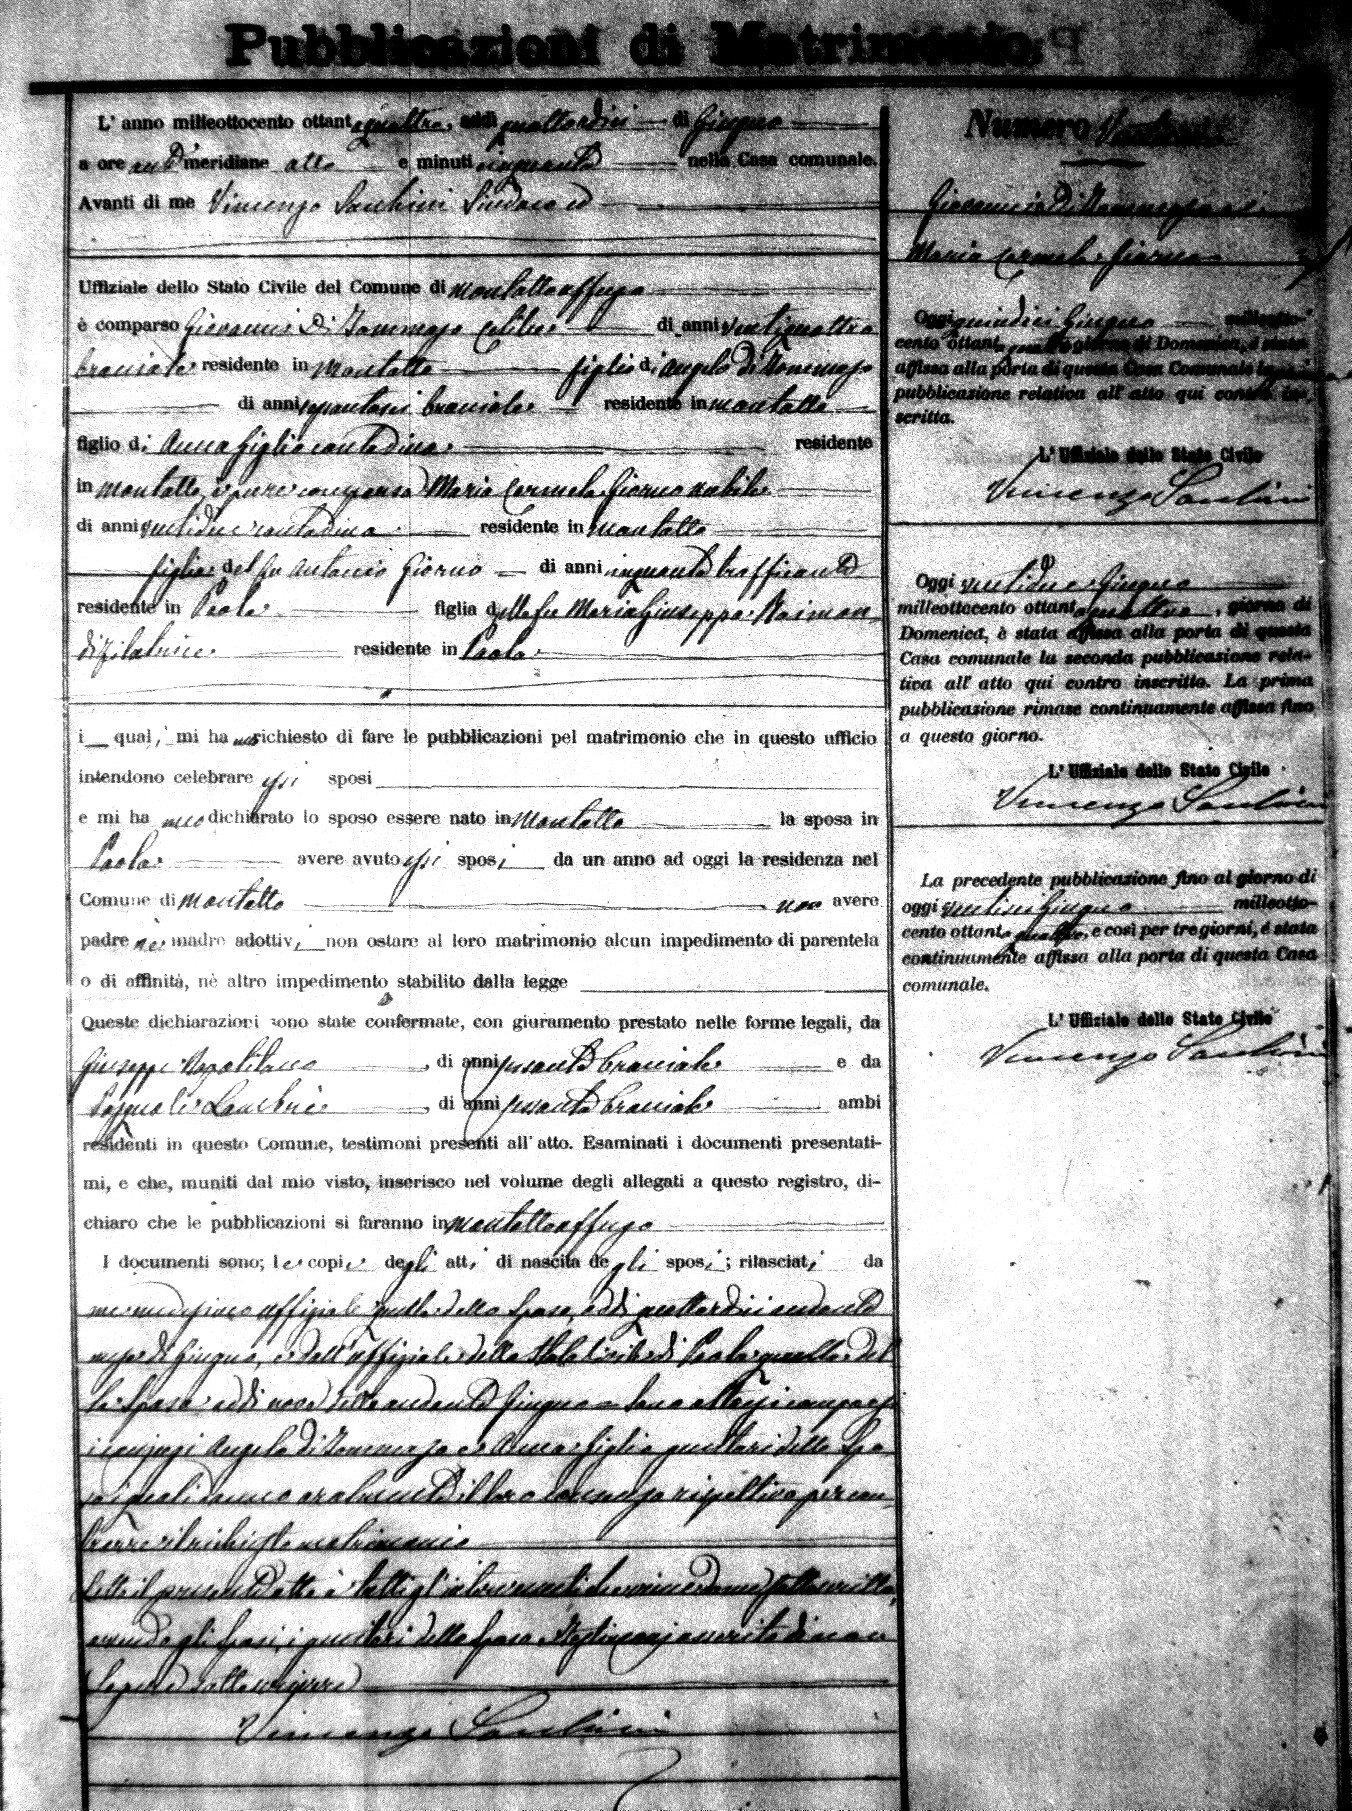 Pubblicazioni di Matrimonio.
L'anno milleottocento ottantaquattro, addì quattordici di Giugno
a ore antimeridiane otto e minuti cinquanta nella Casa comunale.
Avanti di me Vincenzo Sindaco ed
Uffiziale dello Stato Civile del Comune di Montaltouffugo
è comparso Giovanni Di Tommaso celibe di anni ventiquattro
bracciale residente in Montalto figlio di Angelo di Tommaso
di anni bracciale residente in Montalto
figlio di Anna Figlia contadina residente
in Montalto, è pure comparsa Maria Carmela Giorno nubile
di anni ventidue contadina residente in Montalto
figlia del fu Antonio Giorno di anni cinquanta trafficante
residente in Paola figlia della fu Maria Giuseppa Raimon-
di filatrice residente in Paola
i quali mi hanno richiesto di fare le pubblicazioni pel matrimonio che in questo ufficio
intendono celebrare essi sposi
e mi hanno dichiarato lo sposo essere nato in Montalto la sposa in
Paola avere avuto essi sposi da un anno ad oggi la residenza nel
Comune di Montalto non avere
padre nè madre adottivi non ostare al loro matrimonio alcun impedimento di parentela
o di affinità, nè altro impedimento stabilito dalla legge
Queste dichiarazioni sono state confermate, con giuramento prestato nelle forme legali, da
Giuseppe Napolitano, di anni sessanta bracciale e da
Pasquale, di anni sessanta bracciale ambi
residenti in questo Comune, testimoni presenti all'atto. Esaminati i documenti presentati-
mi, e che, muniti dal mio visto, inserisco nel volume degli allegati a questo registro, di-
chiaro che le pubblicazioni si faranno in Montaltouffugo
I documenti sono; le copie degli atti di nascita degli sposi; rilasciati da
me medesimo uffiziale quella dello sposo, addì quattordici andante
mese di Giugno, e dall'uffiziale dello Stato civile di Paola quella del
la sposa addì nove dello andante Giugno sono altresì comparsi
i coniugi Angelo di Tommaso e Anna Figlia genitori dello spo-
so i quali danno oralmente il loro consenso rispettivo per con-
trarre il richiesto matrimonio
Letto il presente atto a tutti gl'intervenuti
avendo gli sposi, i genitori dello sposo e testimoni asserito di non
sapere sottoscrivere
Vincenzo
Numero
Giovanni Di Tommaso ed
Maria Carmela Giorno
Oggi quindici Giugno milleotto-
cento ottantaquattro giorno di Domenica, è stata
affissa alla porta di questa Casa Comunale la prima
pubblicazione relativa all'atto qui contro in-
scritta.
L'Uffiziale dello Stato Civile
Vincenzo
Oggi ventidue Giugno
milleottocento ottantaquattro, giorno di
Domenica, è stata affissa alla porta di questa
Casa comunale la seconda pubblicazione rela-
tiva all'atto qui contro inscritto. La prima
pubblicazione rimase continuamente affissa fino
a questo giorno.
L'Uffiziale dello Stato Civile
Vincenzo
La precedente pubblicazione fino al giorno di
oggi Giugno milleotto-
cento ottantaquattro, e così per tre giorni, è stata
continuamente affissa alla porta di questa Casa
comunale.
L'Uffiziale dello Stato Civile
Vincenzo